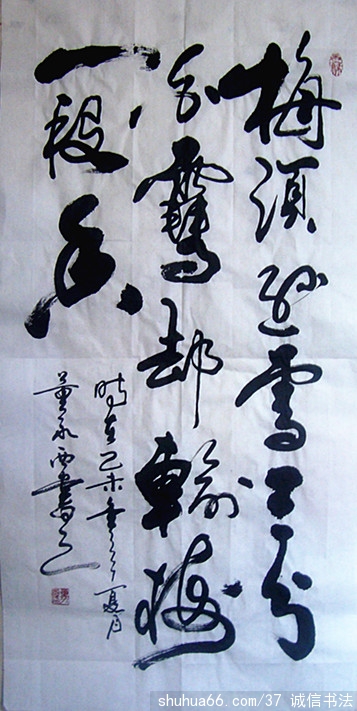 梅須遜雪三分
白雪却輸梅
一段香
時在己未年夏月
董永西書之
shuhua66.com/37 诚信书法